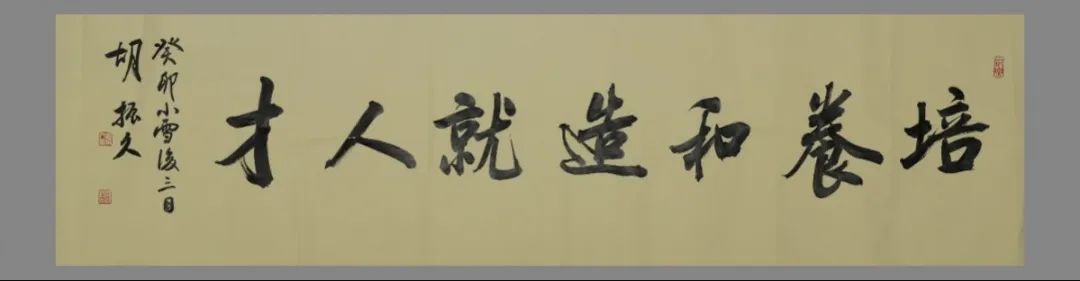 培養和造就人才
癸卯小雪後三日
胡振久